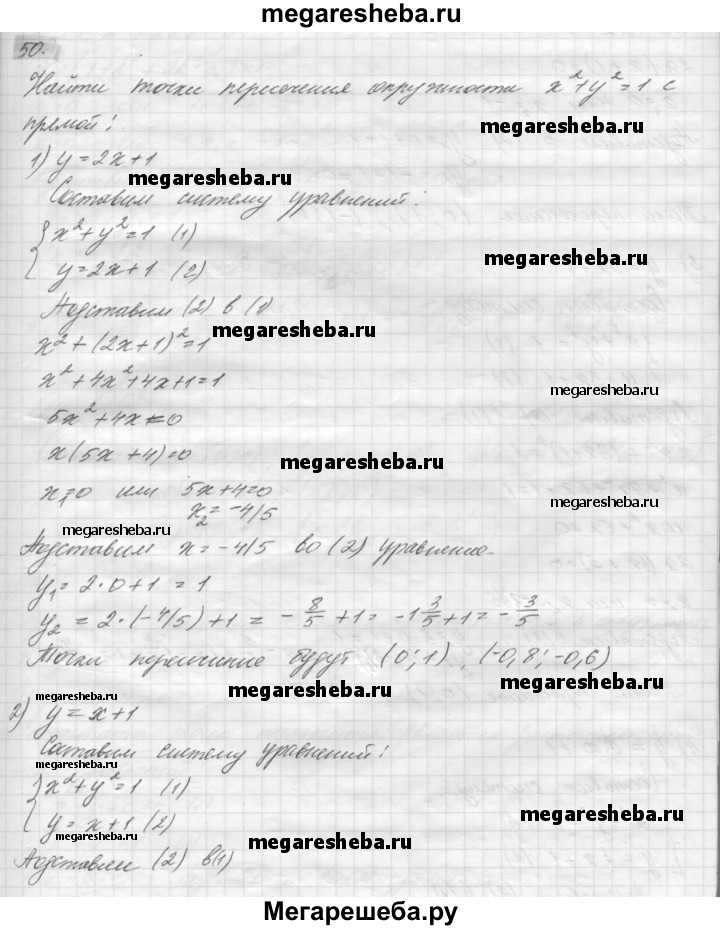 megaresheba.ru
50.
Найти точки пересечения окружности x²+y²=1 с
прямой:
megaresheba.ru
1) y=2x+1
megaresheba.ru
Составим систему уравнений:
{ x²+y²=1 (1)
y=2x+1 (2)
megaresheba.ru
Подставим (2) в (1)
megaresheba.ru
x²+(2x+1)²=1
x²+4x²+4x+1=1
megaresheba.ru
5x²+4x=0
x(5x+4)=0
megaresheba.ru
x₁=0 или 5x+4=0
x₂=-4/5
megaresheba.ru
megaresheba.ru
Подставим x=-4/5 во (2) уравнение
y₁=2·0+1=1
y₂=2·(-4/5)+1=-8/5+1=-1 3/5+1=-3/5
megaresheba.ru
Точки пересечение будут (0;1), (-0,8;-0,6)
megaresheba.ru
megaresheba.ru
megaresheba.ru
2) y=x+1
Составим систему уравнений:
megaresheba.ru
{ x²+y²=1 (1)
y=x+1 (2)
megaresheba.ru
megaresheba.ru
megaresheba.ru
Подставим (2) в(1)
Мегарешеба.ру